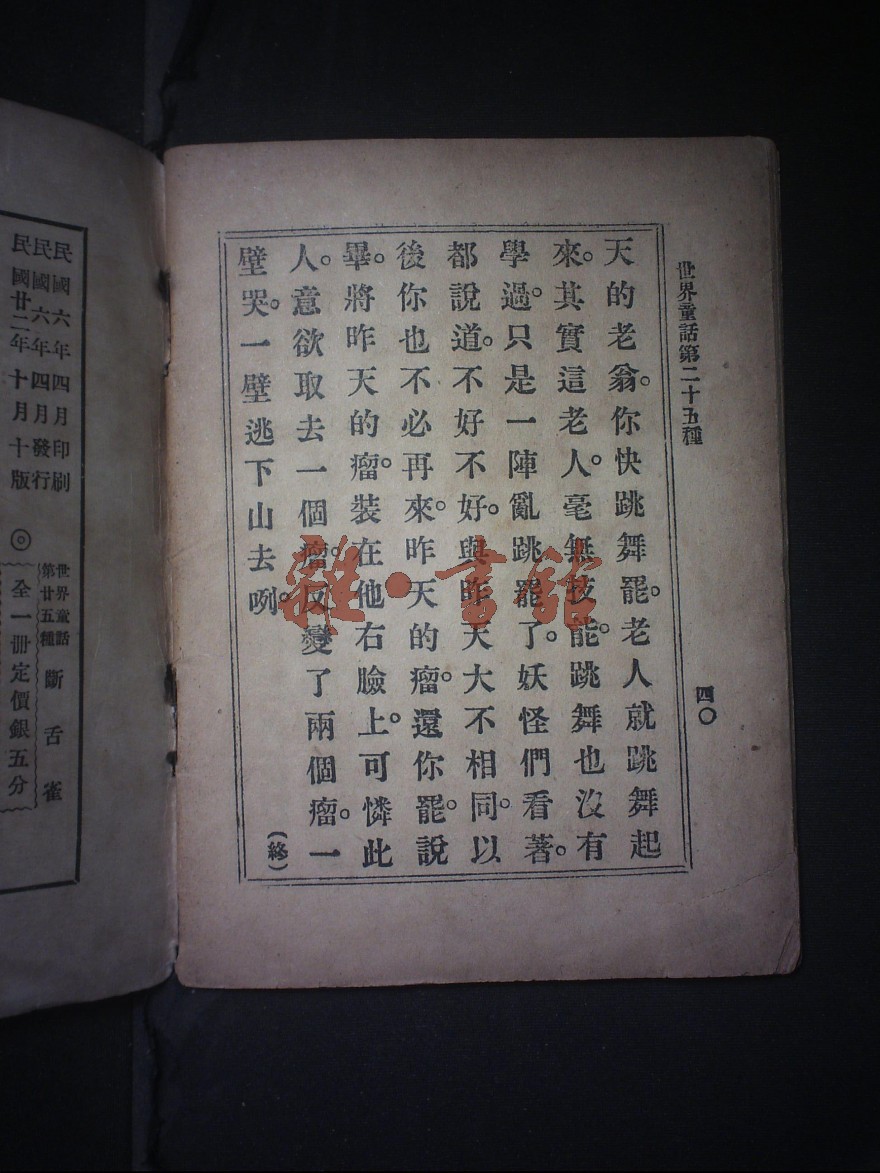 世界童話第二十五種
四〇
天的老翁。你快跳舞罷。老人就跳舞起
來。其實這老人。毫無技能。跳舞也沒有
學過。只是一陣亂跳罷了。妖怪們看著。
都說道。不好不好。與昨天大不相同。以
後你也不必再來。昨天的瘤。還你罷。說
畢。將昨天的瘤。裝在他右臉上。可憐此
人。意欲取去一個瘤。反變了兩個瘤。一
壁哭。一壁逃下山去咧。
(終)
民國六年四月印刷
民國六年四月發行
民國廿二年十月十版
◎
世界童話
第廿五種
斷舌雀
全一冊定價銀五分
雜·書館